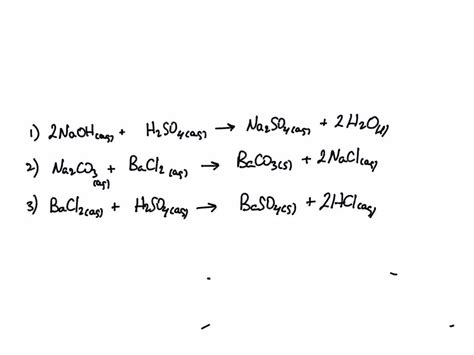 1) 2NaOH(aq) + H2SO4(aq) → Na2SO4(aq) + 2H2O(l)
2) Na2CO3(aq) + BaCl2(aq) → BaCO3(s) + 2NaCl(aq)
3) BaCl2(aq) + H2SO4(aq) → BaSO4(s) + 2HCl(aq)